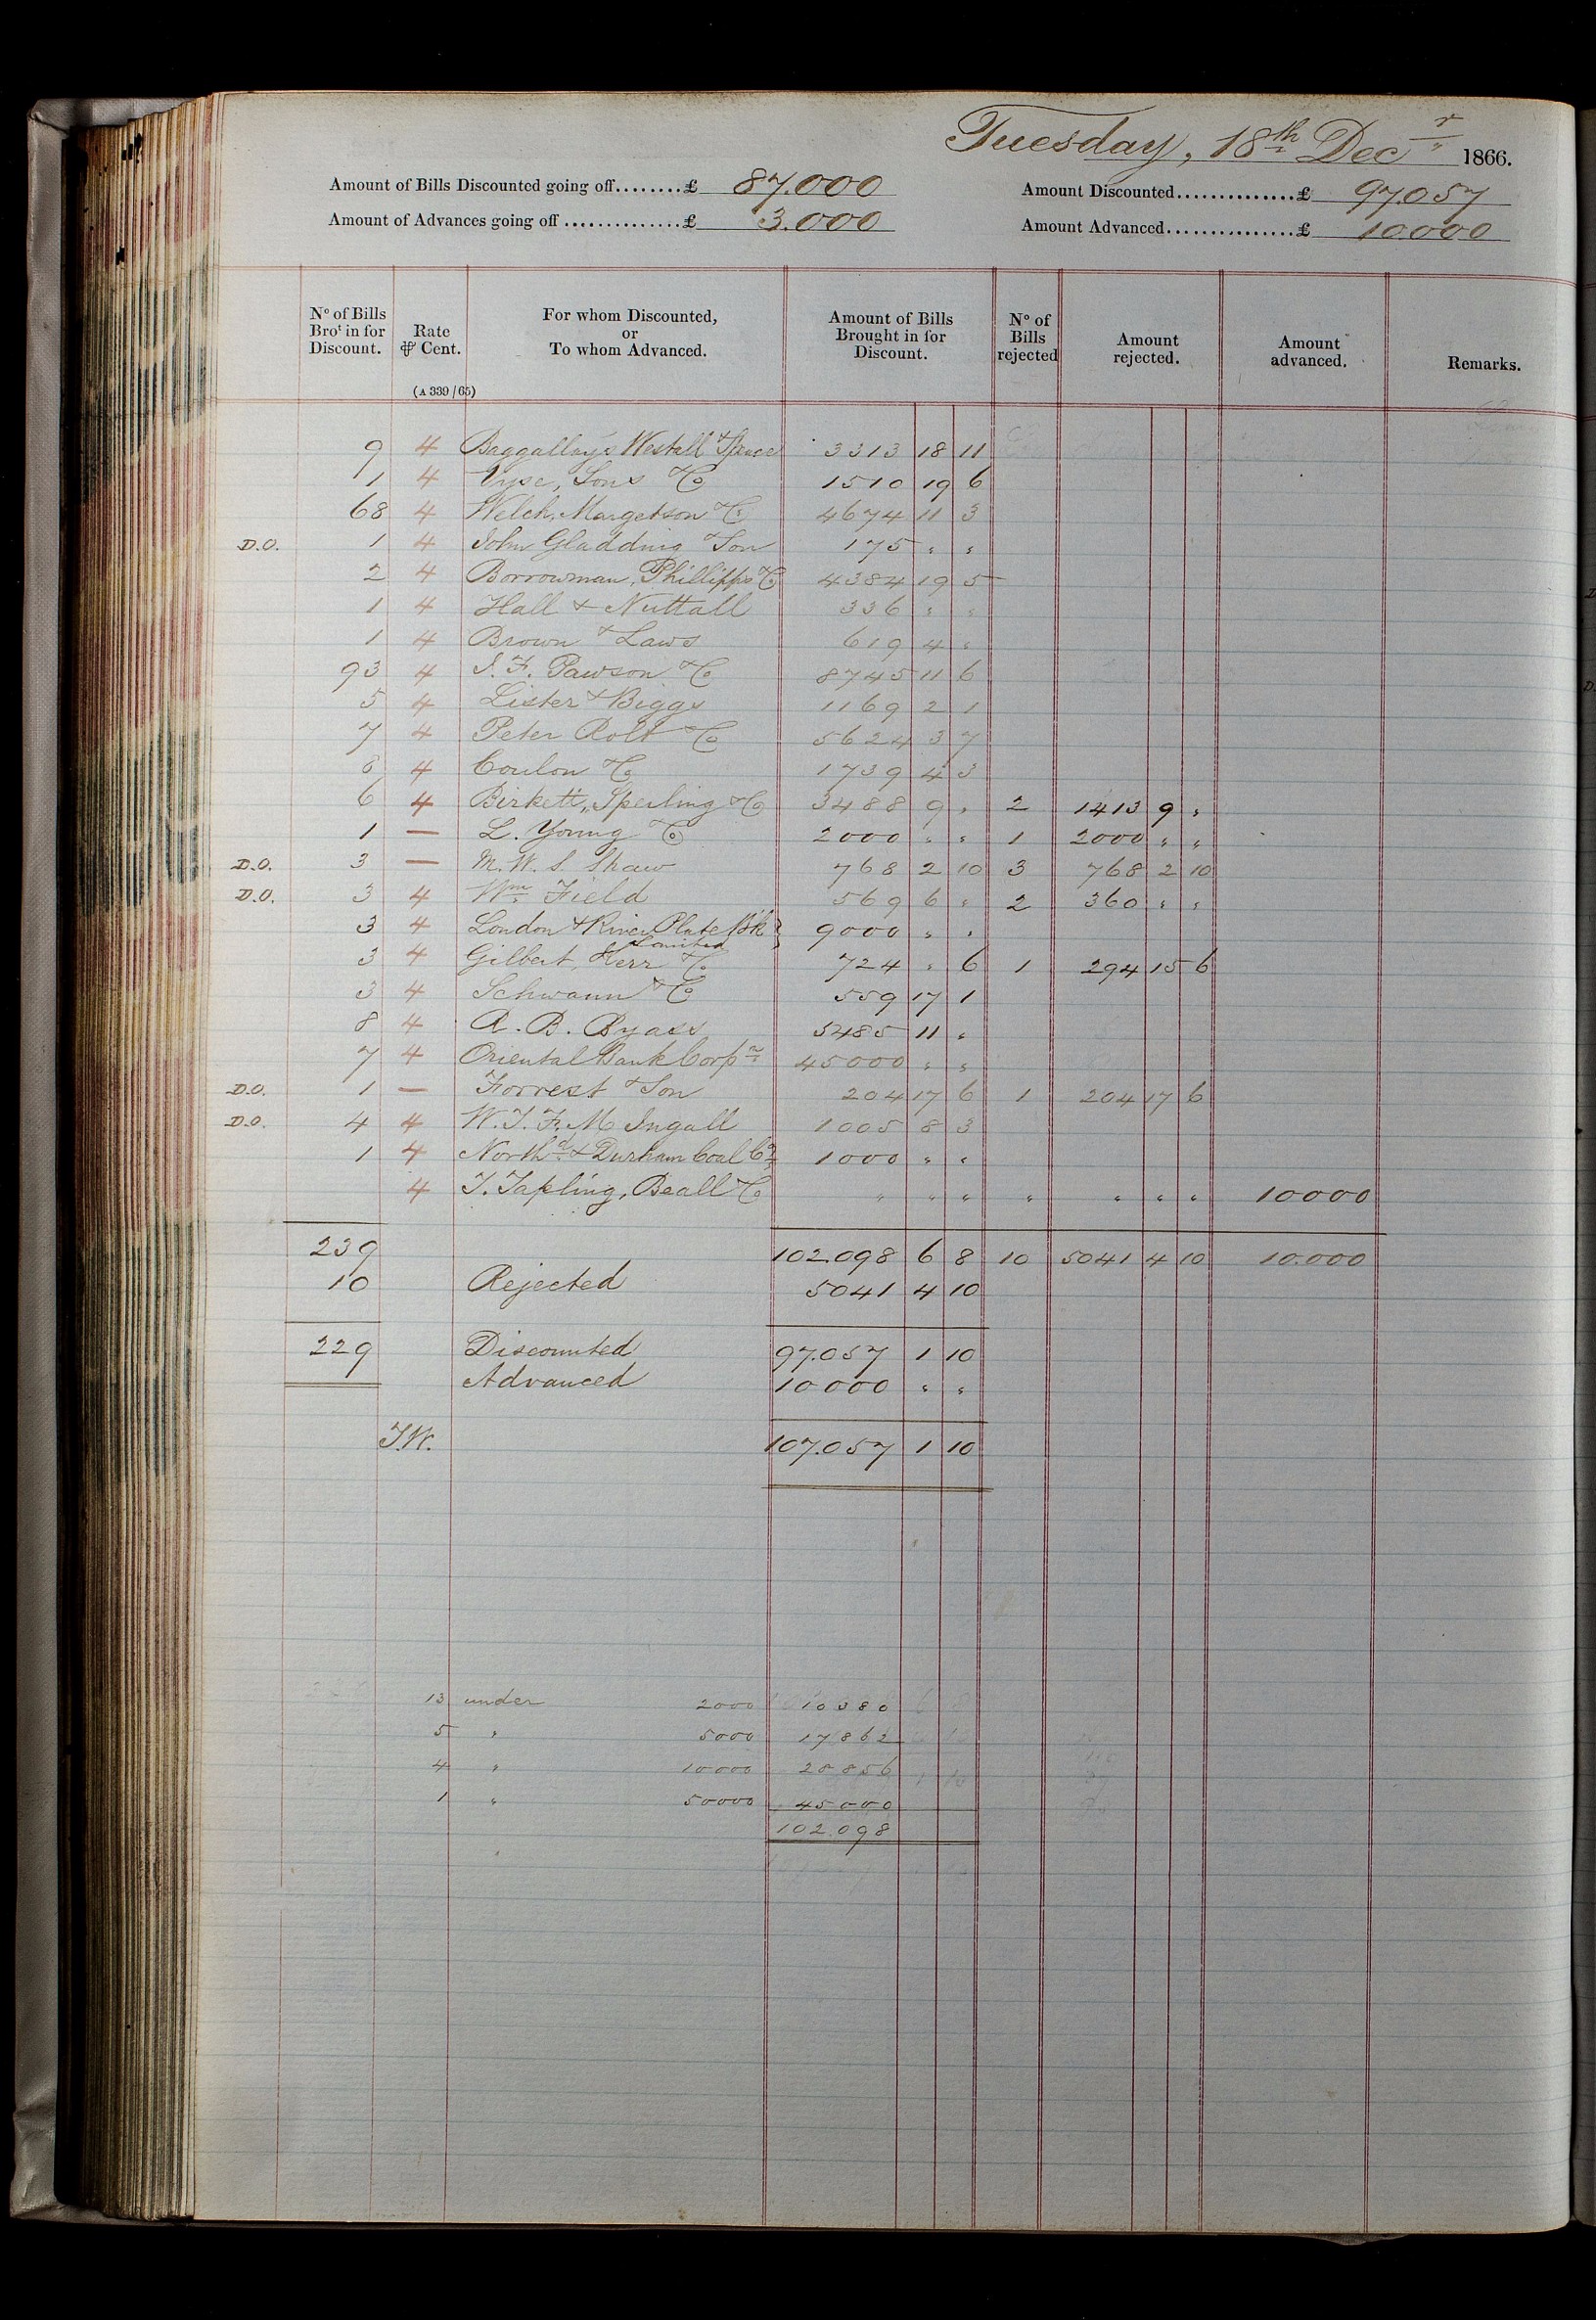 Tuesday, 18th Decr 1866.
Amount of Bills Discounted going off........£ 87.000 Amount Discounted...............£ 97057
Amount of Advances going off ...............£ 3.000 Amount Advanced................£ 10000
No of Bills Brot in for Discount. Rate ⅌ Cent. For whom Discounted, or To whom Advanced. Amount of Bills Brought in for Discount. No of Bills rejected Amount rejected. Amount advanced. Remarks.
(A 339/65)
9 4 Baggallays Westall & Spence 3313 18 11
1 4 Vyse, Sons & Co 1510 19 6
68 4 Welch, Margetson & Co 4674 11 3
D.O. 1 4 John Gladding & Son 175 " "
2 4 Borrowman, Phillipps & Co 4384 19 5
1 4 Hall & Nuttall 336 " "
1 4 Brown & Laws 619 4 "
93 4 J. F. Pawson & Co 8745 11 6
5 4 Lister & Biggs 1169 2 1
7 4 Peter Rolt & Co 5624 3 7
8 4 Coulon & Co 1739 4 3
6 4 Birkett, Sperling & Co 3488 9 " 2 1413 9 "
1 — L. Young & Co 2000 " " 1 2000 " "
D.O. 3 — M. W. S. Shaw 768 2 10 3 768 2 10
D.O. 3 4 Wm Field 569 6 " 2 360 " "
3 4 London & River Plate Bk Limited 9000 " "
3 4 Gilbert, Kerr & Co 724 " 6 1 294 15 6
3 4 Schwann & Co 559 17 1
8 4 R. B. Byass 5485 11 "
7 4 Oriental Bank Corpn 45000 " "
D.O. 1 — Forrest & Son 204 17 6 1 204 17 6
D.O. 4 4 W. T. F. M Ingall 1005 8 3
1 4 Northd & Durham Coal Co 1000 " "
4 T. Tapling, Beall & Co " " " " " " " 10000
239 102.098 6 8 10 5041 4 10 10.000
10 Rejected 5041 4 10
229 Discounted 97.057 1 10
Advanced 10000 " "
J.W. 107.057 1 10
13 under 2000 10380
5 " 5000 17862
4 " 10000 28856
1 " 50000 45000
102.098